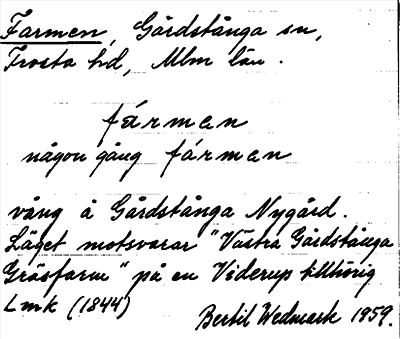 Farmen, Gårdstånga sn,
Frosta hd, Mlm län.
fármen
någon gång fármen
vång å Gårdstånga Nygård.
Läget motsvarar "Västra Gårdstånga
Gräsfarm" på en Viderup tillhörig
Lmk (1844)
Bertil Wedmark 1959.